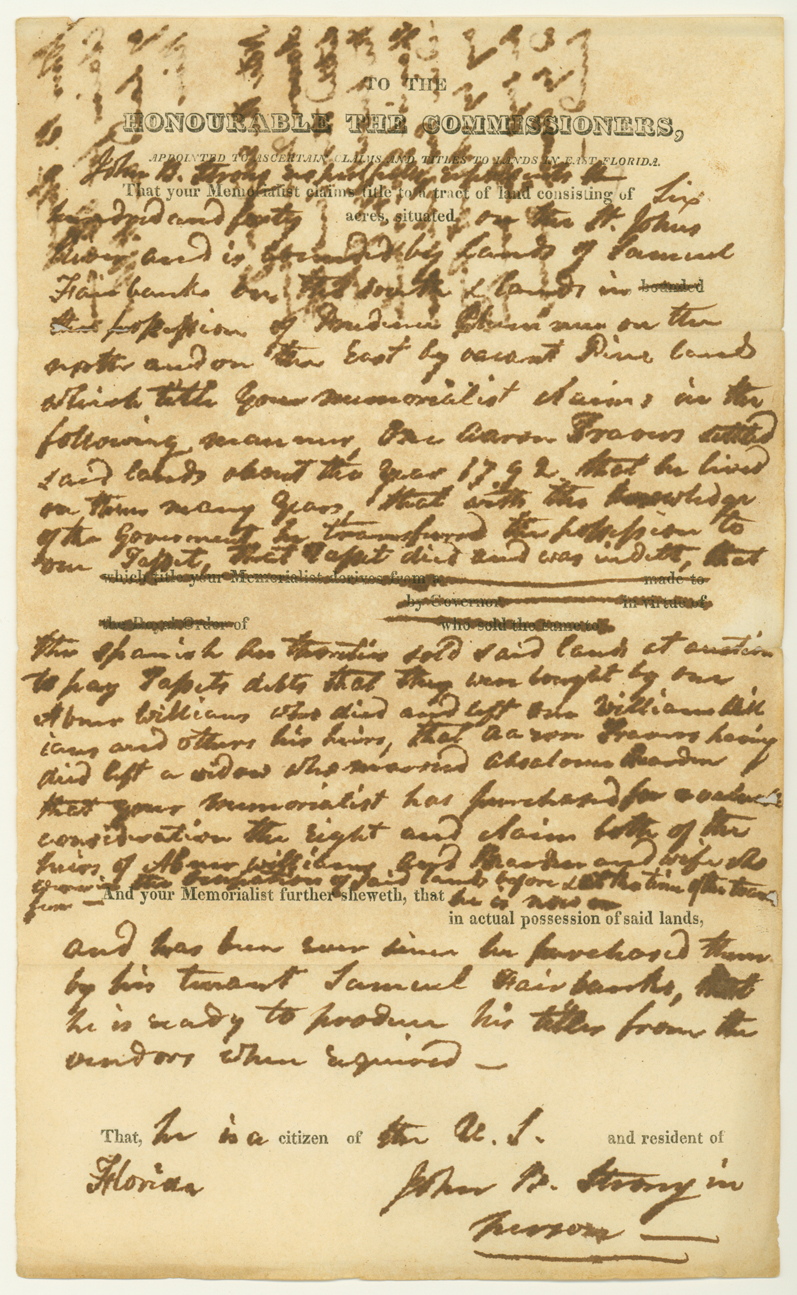 TO THE
HONOURABLE THE COMMISSIONERS,
APPOINTED TO ASCERTAIN CLAIMS AND TITLES TO LANDS IN EAST FLORIDA.
John B. Strong respectfully represents
That your Memorialist claims title to a tract of land consisting of Six
hundred and forty acres, situated on the St. Johns
River and is bounded by Lands of Samuel
Fairbanks on the South & lands in bounded
the possession of Prudence Plummer on the
north and on the East by vacant Pine lands
which title your memorialist claims in the
following manner, One Aaron Travers settled
said lands about the Year 1792 that he lived
on them many Years, that with the knowledge
of the Government he transferred the possession to
one Tappet, that Tappet died and was in debt, that
which title your Memorialist derives from made to
by Governor in virtue of
the Royal Order of who sold the same to
the Spanish Authorities sold said lands at auction
to pay Tappets debts that they were bought by one
Abner Williams who died and left one William Will
iams and others his heirs, that Aaron Travers having
died left a widow who married Absalom Bearden
that your memorialist has purchased for a valuable
consideration the right and claim both of the
heirs of Abner Williams and Bearden and wife who
were in the of said lands before & at the time of the
And your Memorialist further sheweth, that he is now
in actual possession of said lands,
and has been ever since he purchased them
by his tenant Samuel Fairbanks, that
he is ready to produce his titles from the
vendors when required —
That, he is a citizen of the U. S. and resident of
Florida John B. Strong in
person —